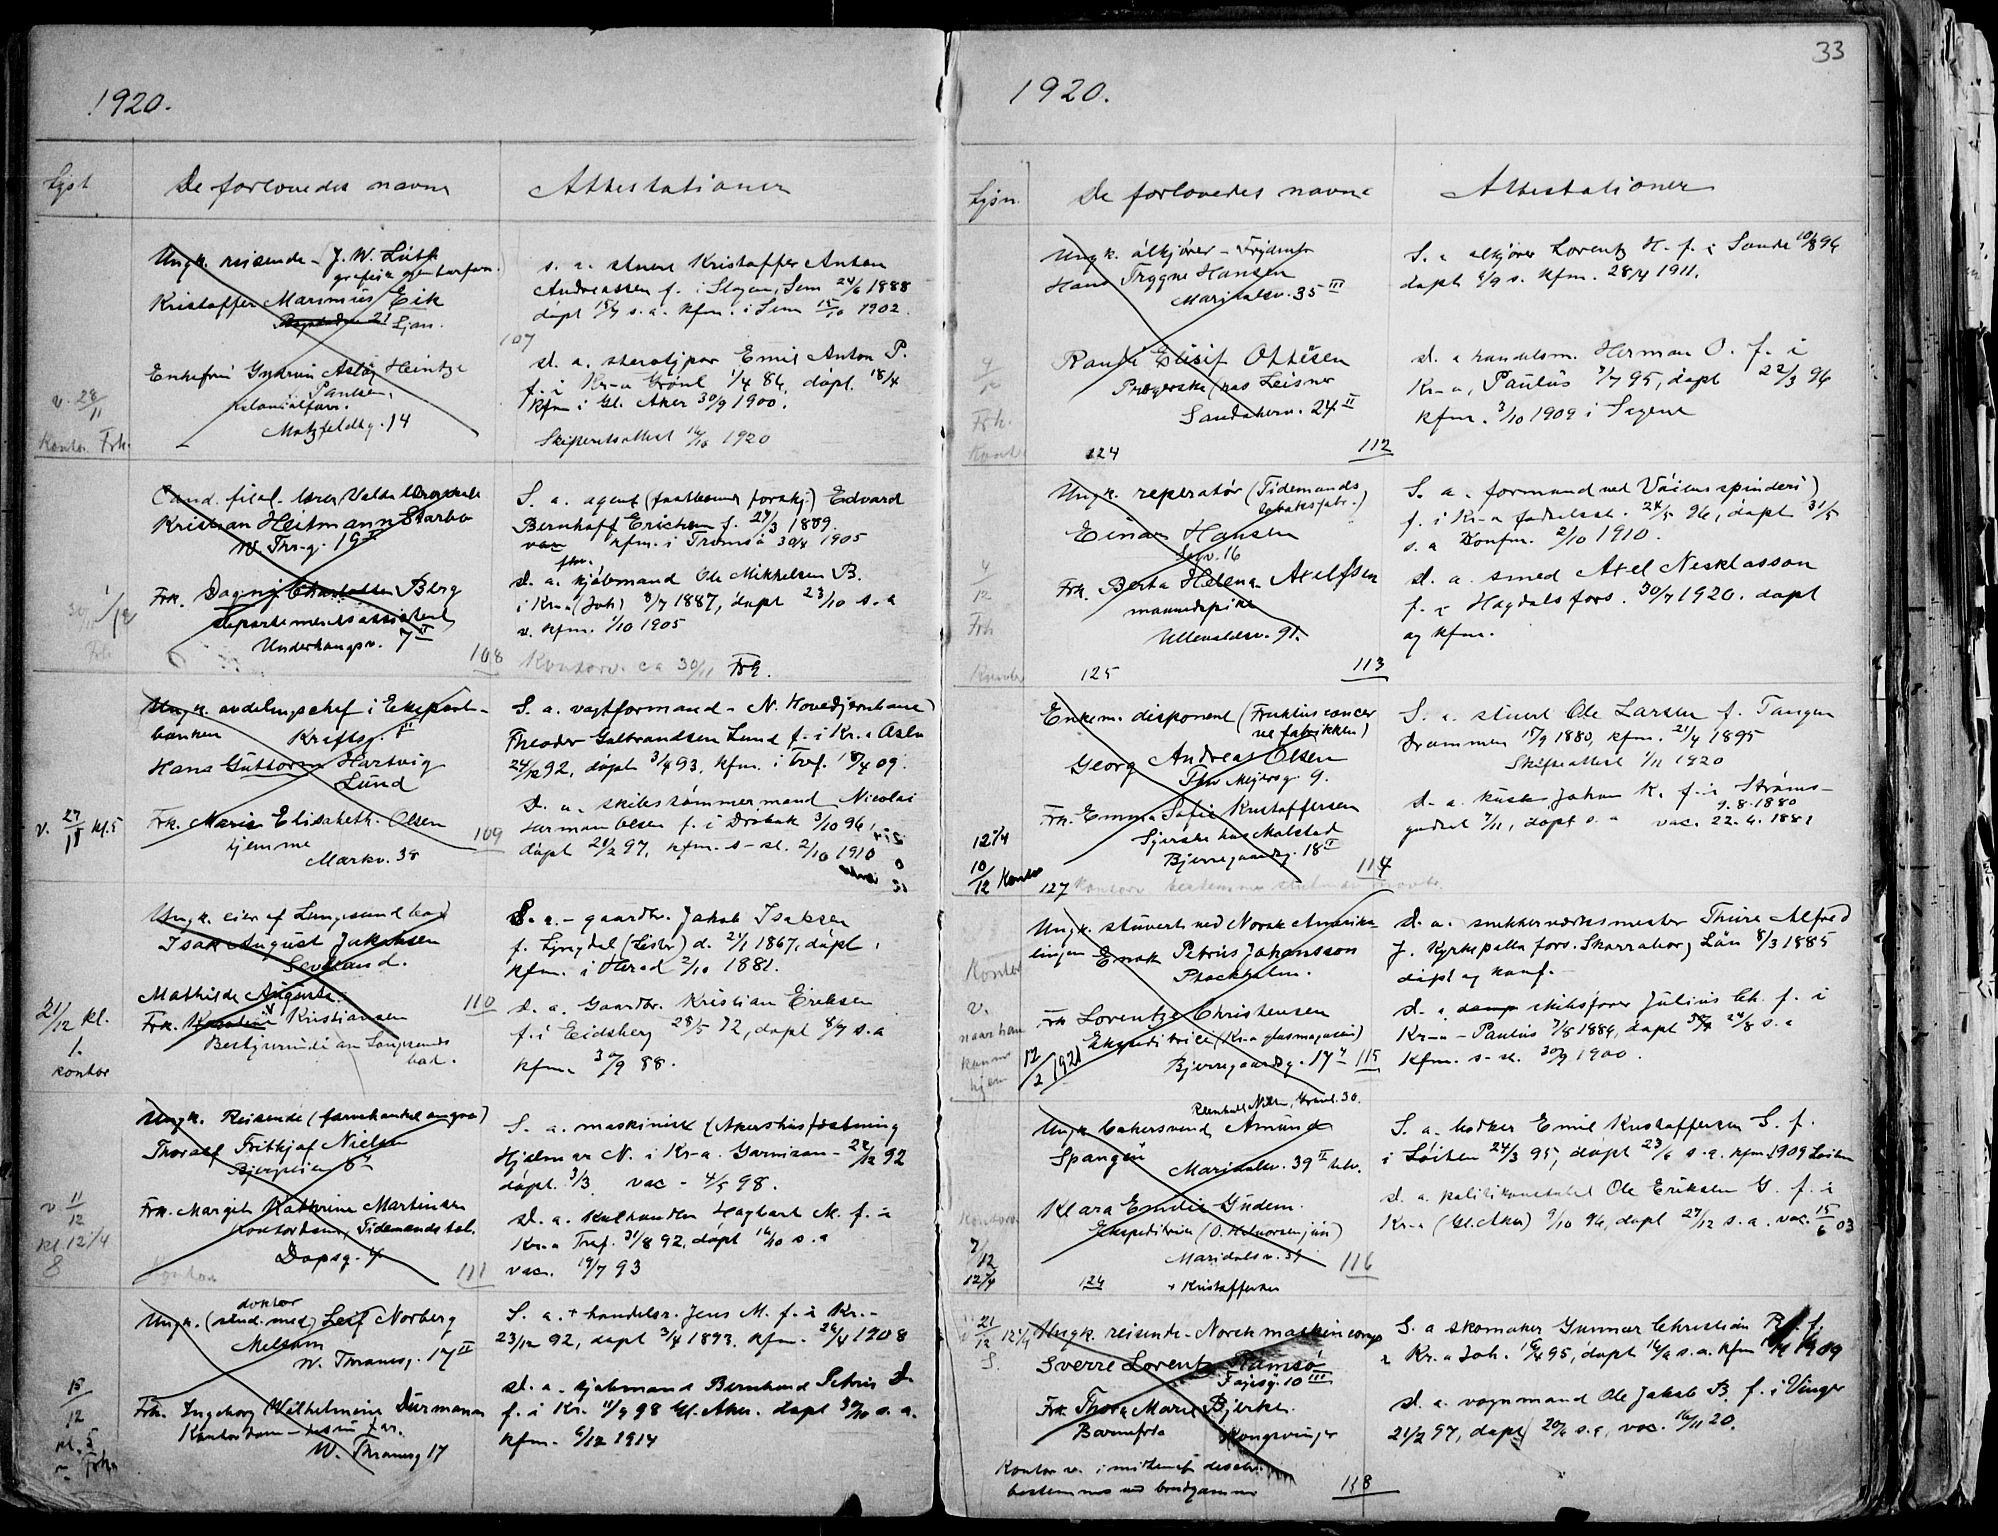 33
1920.
Lyst
De forlovedes navne
Attestationer
Ungk. reisende - J. W. Lüth
grafisk agenturforr.)
Kristoffer Marinius Eik
21 Ljan.
Enkefru Gudrun Aslög Heintze
Paulsen,
Kolonialforr.
Motzfeldtsg. 14
v. 28/11
Kontor Frk.
s. a. stuert Kristoffer Anton
Andreassen f. i Slagen, Sem 24/6 1888
döpt 15/7 s. a. kfm. i Sem 15/10 1902.
107
d. a. sterotypør Emil Anton P.
f. i Kr-a Grönl 1/4 86, döpt. 18/4
kfm i Gl. Aker 30/9 1900.
Skifteattest 16/10 1920
Cand. filol. lærer Valda Urørskole
Kristian Heitmann Starbo
W. Thrs.g. 19
Frk. Dagny Charlotten Berg
departementsassistent
Underhaugsv. 7 II
108
S. a. agent (faatbeand forskj.) Edvard
Bernhoff Erichsen f. 27/3 1889.
kfm. i Tromsö 30/4 1905
d. a. kjøbmand Ole Mikkelsen B.
i Kr-a (Joh) 8/7 1887, döpt 23/10 s. a
v. kfm. 1/10 1905
Kontorv. ca 30/11 Frk.
Ungk. avdelingschef i Eksport-
banken Kraftsg. 5
Hans Guttorm Hartvig
Lund
Frk. Marie Elisabeth Olsen
hjemme
Markv. 38
109
v. 27/11 kl. 5
S. a. vagtformand - N. Hovedjernbane)
Theodor Gulbrandsen Lund f. i Kr.a Oslo
24/12 92, döpt 3/4 93, kfm. i Tref. 18/4 09.
d. a. skibstömmermand Nicolai
Herman Olsen f. i Dröbak 3/10 96,
döpt 21/2 97, kfm. s - sl. 2/10 1910
Ungk. eier af Langesund bad
Isak August Jakobsen
Sevland.
Mathilde Auguste
Frk. Kristiansen
Bestyrerinde av Langesunds
bad.
110
21/12 kl.
1.
kontor
S. a. - gaardbr. Jakob Isaksen
f. Lyngdal (Lister) d. 24/1 1867, döpt,
kfm. i Herad 2/10 1881.
d. a. Gaardbr. Kristian Eriksen
f. i Eidsberg 28/5 72, döpt 8/7 s. a
kfm. 30/9 88.
Ungk. Reisende (farvehandel angros)
Thoralf Fritkjof Nielsen
Frk. Margit Kathrine Martinsen
kontordame, Tidemands tob.
Dopsg. 4
111
v 11/12
kl. 12 1/4
8
S. a. maskinist (Akershus fæstning
Hjalmar N. i Kr-a. Garnison - 22/12 92
döpt. 3/3 vac - 4/5 98.
d. a. Kulhandler Hagbart M. f. i
Kr.a Tref. 31/8 92, döpt 16/10 s. a
vac. 19/7 93
doktor
Ungk. (stud. med) Leif Norberg
Melsom
W. Thranesg. 17 II
Frk. Ingeborg Wilhelmine Dürmann
Kontordam - hos sin far.
W. Thranesg 17
15/12
kl. 5
S. a. + handelsr. Jens M. f. i Kr. -
23/12 92, döpt 3/4 1893. kfm. 26/4 1908
d. a. kjøbmand Bernhard Petrus D
f. i Kr. 11/9 98 Gl. Aker. döpt 30/10 s. a.
kfm. 6/12 1914
1920.
Lysn.
De forlovedes navne
Attestationer
Ungk. ölkjörer - Frydenlu
Hans Trygve Hansen
Maridalsv. 35 III
Randi Elisif Ottesen
Prægerske (hos Leisner
Sandakerv. 24 II
124
112
Frk.
S. a ölkjører Lorentz H. f. i Sande 10/8 96
döpt 6/9 s. kfm. 28/4 1911.
d. a handelsm. Herman O. f. i
Kr-a, Paulus 7/7 95, döpt 22/3 96
kfm. 3/10 1909 i Sagene
Ungk. reperatör (Tidemands
tobaksfabr.)
Einar Hansen
16
Frk. Berta Helena Axelsson
Ullevaldsv. 91.
4/12
Frk
125
113
S. a. formand ved Vöiens spinderi)
f. i Kr-a fødselsst. 24/5 96, döpt 31/5
s. a Konfm. 2/10 1910.
d. a. smed Axel Nesklasson
f. i Högdalsfors. 30/7 1920. döpt
og kfm.
Enkem. disponent (Fruktiscancer
ve fabrikken)
Georg Andreas Olsen
Thv Meyersg. 9.
Frk. Emma Sofie Kristoffersen
Syerske hos Molstad
Bjerregaardsg. 18 II
12 1/4
10/12 Kontor
114
127 Kontorv bestemmes
S. a. stuert Ole Larsen f. Tangen
Drammen 15/9 1880, kfm. 21/4 1895
Skifteattest 1/11 1920
d. a. kusk Johan K. f. i Ströms-
9.8.1880
godset 7/11, döpt s. a vac. 22.4.1881
Ungk. stuert ved Norsk Amerika-
linjen Enok Petrus Johansson
Stockholm.
Frk Lorentze Christensen
Ekspeditrice (Kr-a glasmagasin)
Bjerregaardsg. 17 115
v.
naar han
kommer
hjem
12/2 1921
d. a. snekkerværksmester Thure Alfred
J. Kyrkefalla fors. Skaraborg Län 8/3 1885
döpt og konf. -
d. a skibsfører Julius Ch. f. i
Kr-a - Paulus 7/8 1884, döpt 24/8 s. a
kfm. s-st. 30/9 1900.
Ungk bakersvend Amund
Spangen
Maridalsv. 39 II
Klara Emilie Gudem.
Ekspeditrice (O. Halvorsen jun)
Maridalsv. 39
116
Kontorv
7/12
12 1/4
124
+ Kristoffersen
S. a. bødker Emil Kristoffersen S. f.
i Löiten 24/3 95, döpt 23/6 s. a. kfm. 1909 Löiten
d. a. politikonstabel Ole Eriksen G. f. i
Kr-a (Gl. Aker) 9/10 96, döpt 27/12 s. a. vac. 15/6 03
21/12 12 1/4
Ungk. reisende - Norsk maskincomp
Sverre Lorentz Ramsö
10 III
Frk Thora Marie Bjerke.
Barnefrö Kongsvinger
Kontor v. i midten af desebr.
bestemmes ved brudgommen
118
S. a skomaker Gunnar Christian R. f.
i Kr.a Joh. 16/4 95, döpt 16/6 s. a. kfm 1909
d. a. vognmand Ole Jakob B. f. i Vinger
21/2 97, döpt 20/4 s. a, vac. 16/11 20.